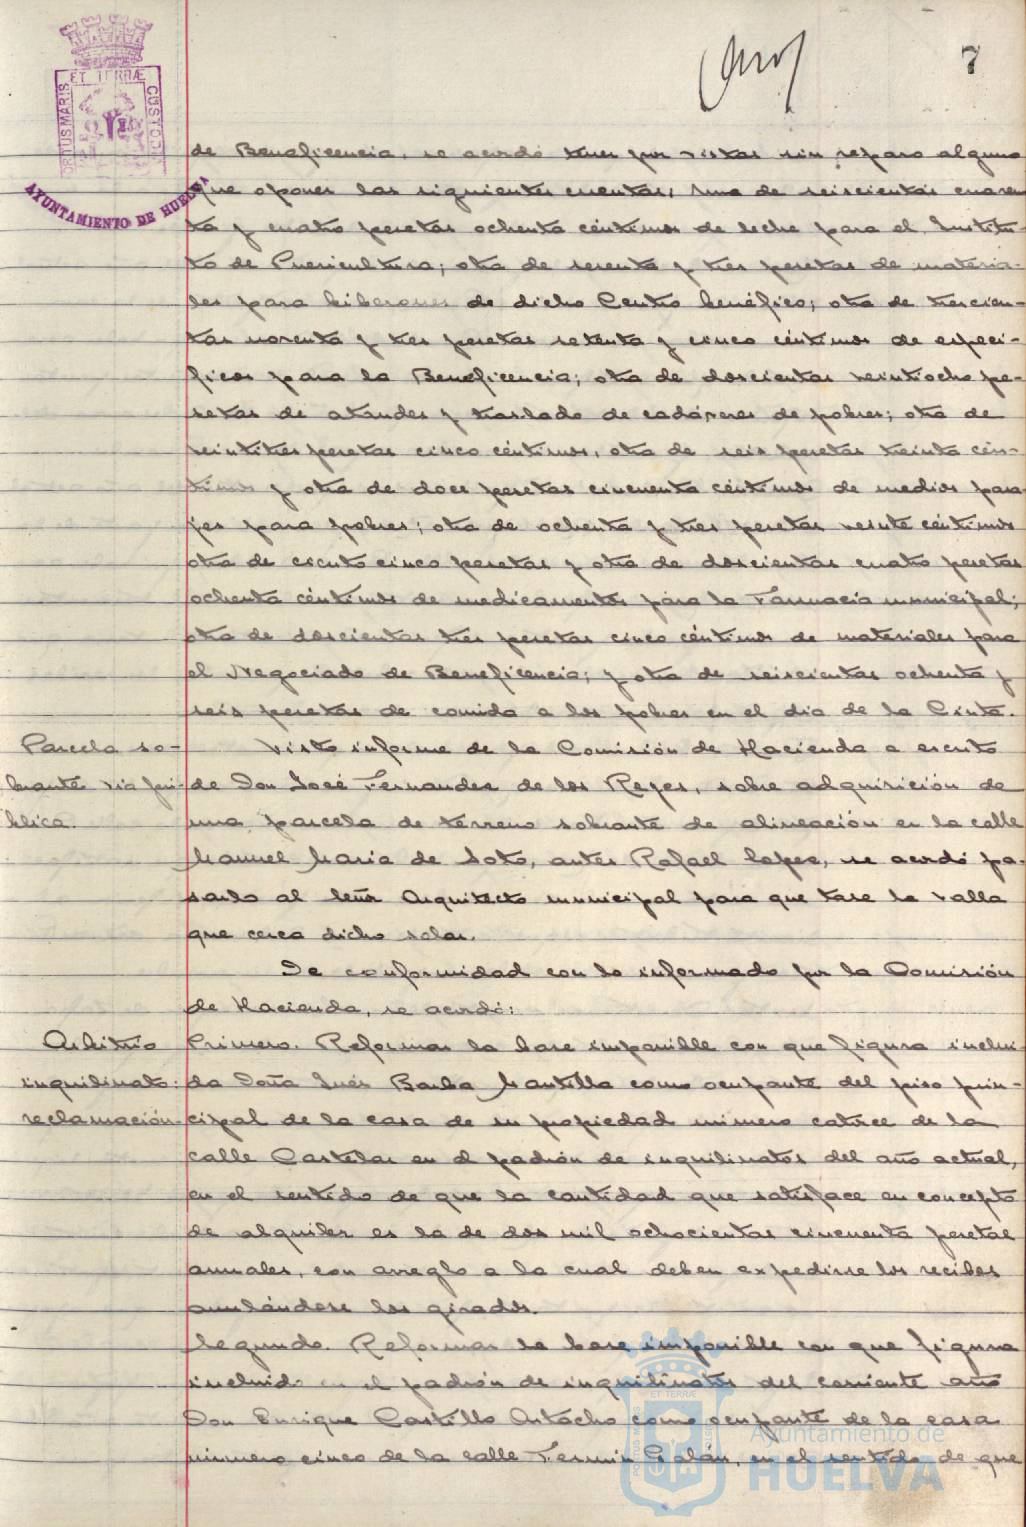 7
ET TERRÆ
PORTUS MARIS
CUSTODI
AYUNTAMIENTO DE HUELVA
de Beneficencia, se acordó tener por vistas sin reparo alguno
que oponer las siguientes cuentas: una de seiscientas cuaren-
ta y cuatro pesetas ochenta céntimos de leche para el Institu-
to de Puericultura; otra de sesenta y tres pesetas de materia-
les para biberones de dicho Centro benéfico; otra de trescien-
tas noventa y tres pesetas setenta y cinco céntimos de especí-
ficos para la Beneficencia; otra de doscientas veintiocho pe-
setas de ataudes y traslado de cadáveres de pobres; otra de
veintitres pesetas cinco céntimos, otra de seis pesetas treinta cén-
timos y otra de doce pesetas cincuenta céntimos de medios pasa-
jes para pobres; otra de ochenta y tres pesetas veinte céntimos
otra de ciento cinco pesetas y otra de doscientas cuatro pesetas
ochenta céntimos de medicamentos para la Farmacia municipal;
otra de doscientas tres pesetas cinco céntimos de materiales para
el Negociado de Beneficencia; y otra de seiscientas ochenta y
seis pesetas de comida a los pobres en el dia de la Cinta.
Parcela so-
brante via pú-
blica.
Visto informe de la Comisión de Hacienda a escrito
de Don José Fernandez de los Reyes, sobre adquisición de
una parcela de terreno sobrante de alineación en la calle
Manuel Maria de Soto, antes Rafael Lopez, se acordó pa-
sarlo al Señor Arquitecto municipal para que tase la valla
que cerca dicho solar.
De conformidad con lo informado por la Comisión
de Hacienda, se acordó:
Arbitrio
inquilinato:
reclamación.
Primero. Reformar la base imponible con que figura inclui-
da Doña Inés Barba Mantilla como ocupante del piso prin-
cipal de la casa de su propiedad número catorce de la
calle Castelar en el padrón de inquilinatos del año actual,
en el sentido de que la cantidad que satisface en concepto
de alquiler es la de dos mil ochocientas cincuenta pesetas
anuales, con arreglo a la cual deben expedirse los recibos
anulándose los girados.
Segundo. Reformar la base imponible con que figura
incluido en el padrón de inquilinatos del corriente año
Don Enrique Castillo Astacho como ocupante de la casa
número cinco de la calle Fermin Galán, en el sentido de que
Ayuntamiento de
HUELVA